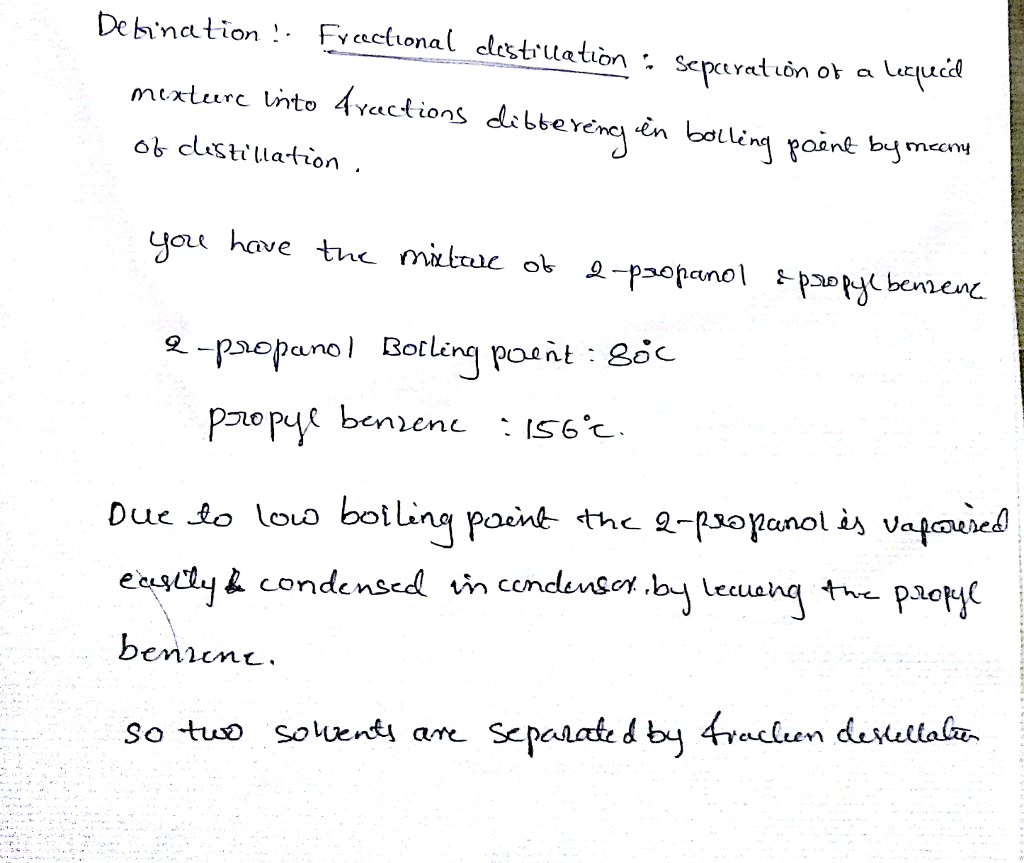 Defination :- Fractional distillation : separation of a liquid
mixture into fractions differing in boiling point by means
of distillation .
you have the mixture of 2-propanol & propyl benzene
2-propanol Boiling point : 80°C
propyl benzene : 156°C.
Due to low boiling point the 2-propanol is vapourised
easily & condensed in condensor. by leaving the propyl
benzene.
so two solvents are separated by fraction destillation